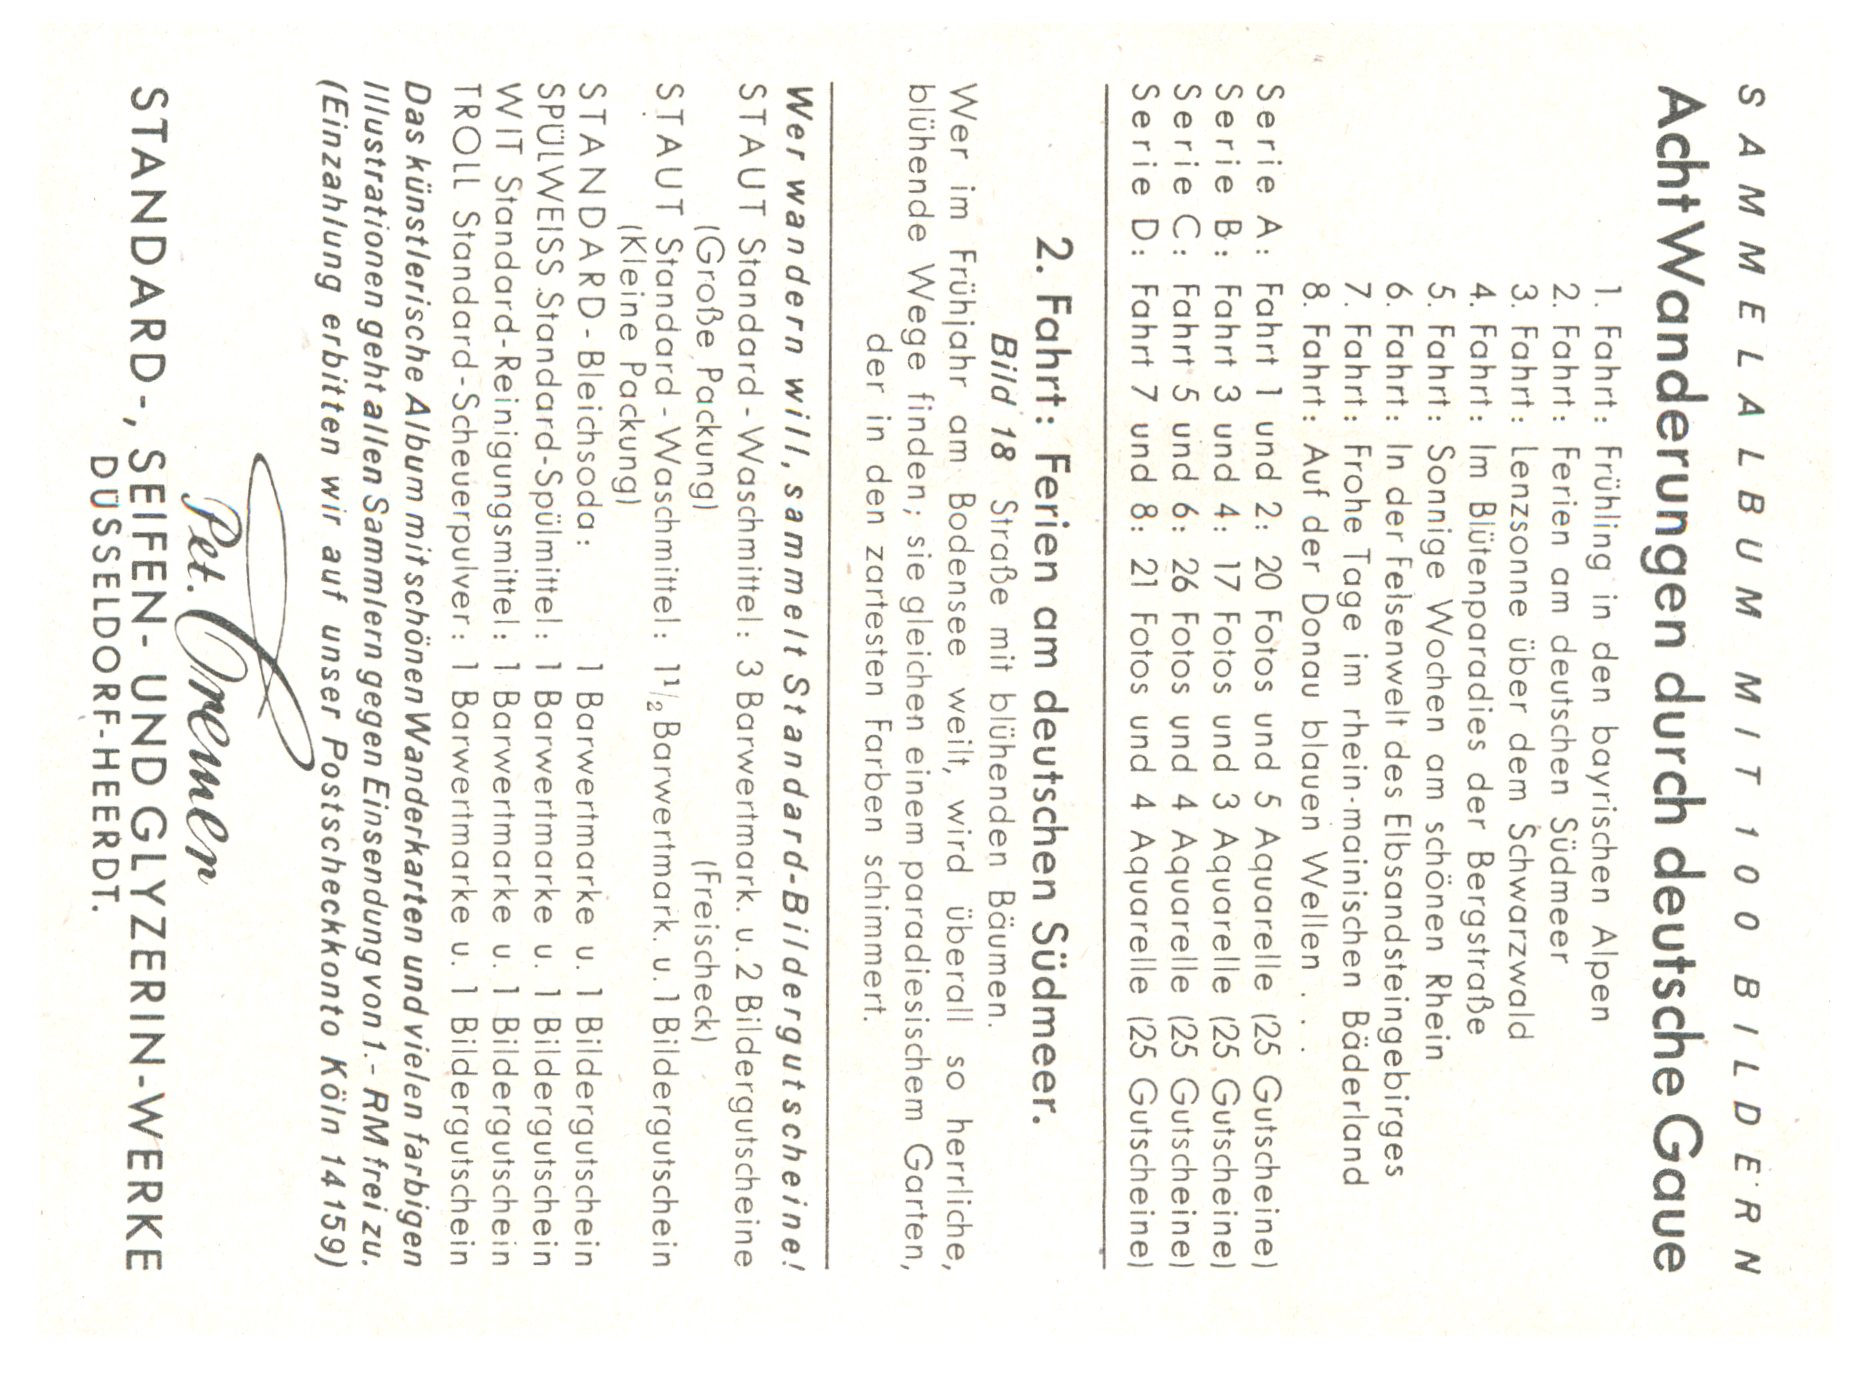 SAMMELALBUM MIT 100 BILDERN
Acht Wanderungen durch deutsche Gaue
1. Fahrt: Frühling in den bayrischen Alpen
2. Fahrt: Ferien am deutschen Südmeer
3. Fahrt: Lenzsonne über dem Schwarzwald
4. Fahrt: Im Blütenparadies der Bergstraße
5. Fahrt: Sonnige Wochen am schönen Rhein
6. Fahrt: In der Felsenwelt des Elbsandsteingebirges
7. Fahrt: Frohe Tage im rhein-mainischen Bäderland
8. Fahrt: Auf der Donau blauen Wellen . . .
Serie A: Fahrt 1 und 2: 20 Fotos und 5 Aquarelle (25 Gutscheine)
Serie B: Fahrt 3 und 4: 17 Fotos und 3 Aquarelle (25 Gutscheine)
Serie C: Fahrt 5 und 6: 26 Fotos und 4 Aquarelle (25 Gutscheine)
Serie D: Fahrt 7 und 8: 21 Fotos und 4 Aquarelle (25 Gutscheine)
2. Fahrt: Ferien am deutschen Südmeer.
Bild 18 Straße mit blühenden Bäumen.
Wer im Frühjahr am Bodensee weilt, wird überall so herrliche,
blühende Wege finden; sie gleichen einem paradiesischem Garten,
der in den zartesten Farben schimmert.
Wer wandern will, sammelt Standard-Bildergutscheine!
STAUT Standard-Waschmittel: 3 Barwertmark. u. 2 Bildergutscheine
(Große Packung) (Freischeck)
STAUT Standard-Waschmittel: 1 1/2 Barwertmark. u. 1 Bildergutschein
(Kleine Packung)
STANDARD-Bleichsoda: 1 Barwertmarke u. 1 Bildergutschein
SPÜLWEISS Standard-Spülmittel: 1 Barwertmarke u. 1 Bildergutschein
WIT Standard-Reinigungsmittel: 1 Barwertmarke u. 1 Bildergutschein
TROLL Standard-Scheuerpulver: 1 Barwertmarke u. 1 Bildergutschein
Das künstlerische Album mit schönen Wanderkarten und vielen farbigen
Illustrationen geht allen Sammlern gegen Einsendung von 1.- RM frei zu.
(Einzahlung erbitten wir auf unser Postscheckkonto Köln 14159)
Pet. Cremer
STANDARD-, SEIFEN- UND GLYZERIN-WERKE
DÜSSELDORF-HEERDT.